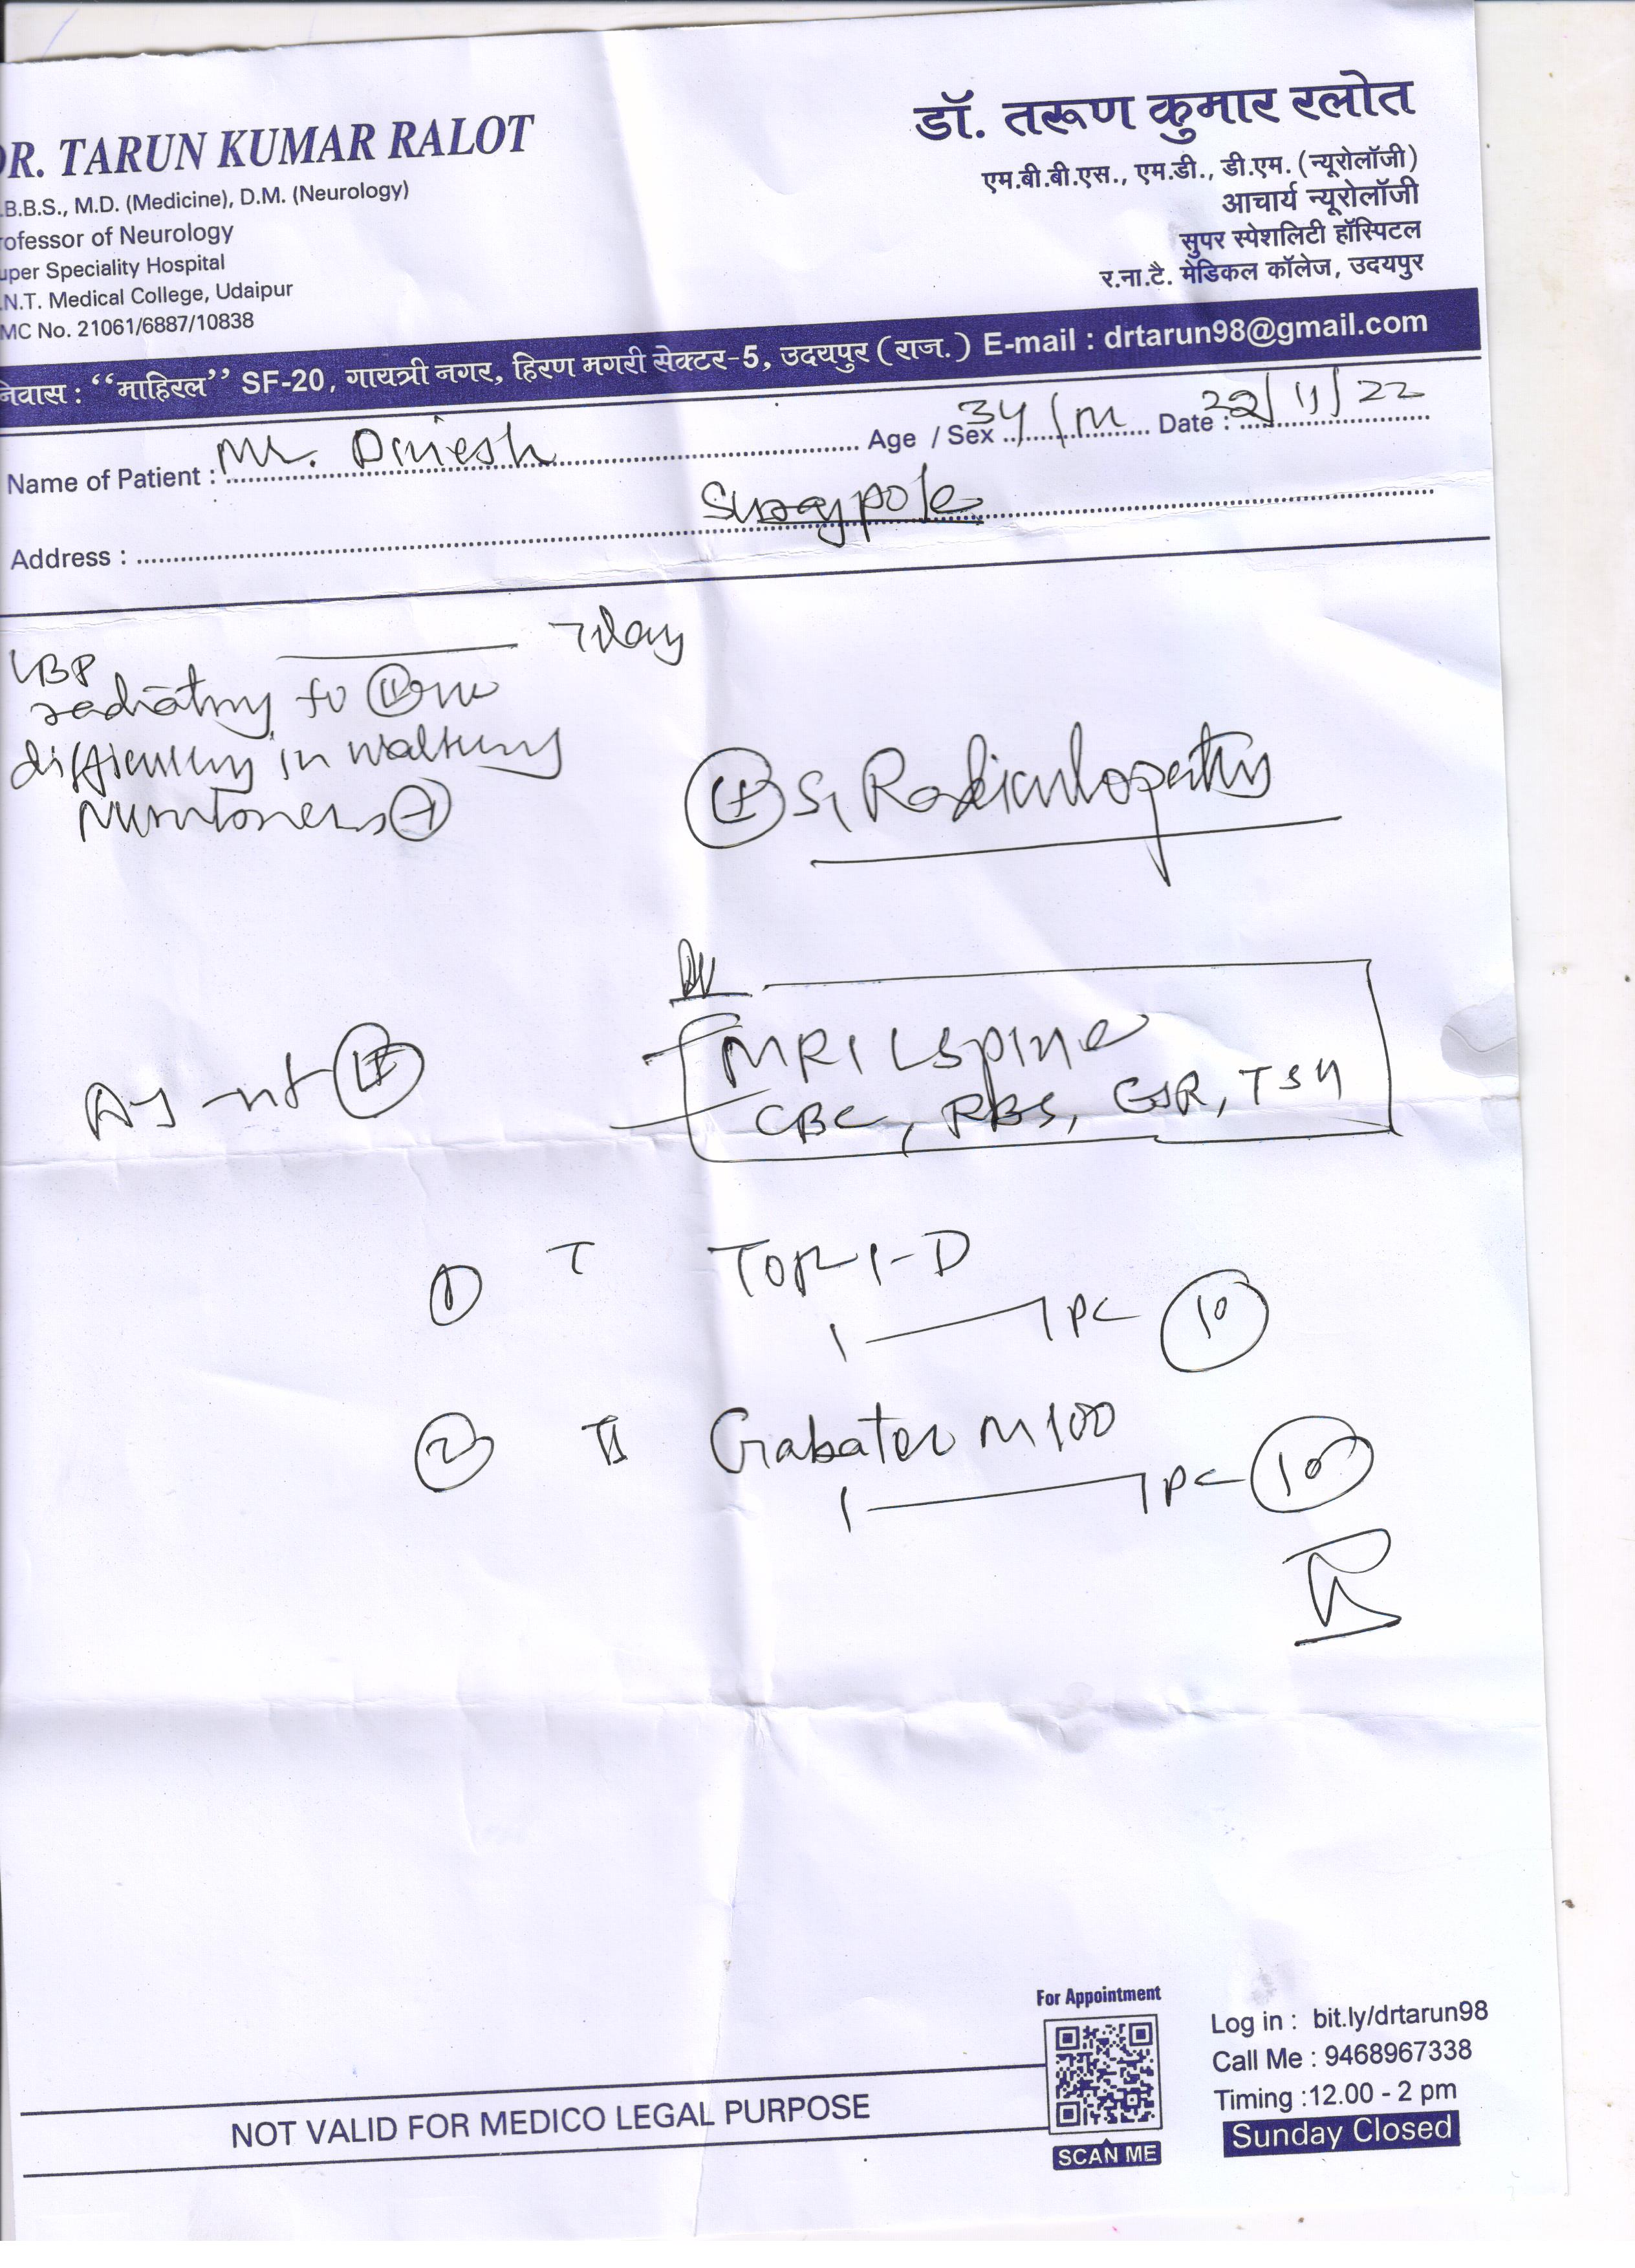 DR. TARUN KUMAR RALOT
.B.B.S., M.D. (Medicine), D.M. (Neurology)
rofessor of Neurology
uper Speciality Hospital
.N.T. Medical College, Udaipur
MC No. 21061/6887/10838
डॉ. तरूण कुमार रलोत
एम.बी.बी.एस., एम.डी., डी.एम. (न्यूरोलॉजी)
आचार्य न्यूरोलॉजी
सुपर स्पेशलिटी हॉस्पिटल
र.ना.टै. मेडिकल कॉलेज, उदयपुर
निवास : “माहिरल” SF-20, गायत्री नगर, हिरण मगरी सेक्टर-5, उदयपुर (राज.) E-mail : drtarun98@gmail.com
Name of Patient : Mr. Dinesh Age / Sex 34/M Date : 22/11/22
Address : Surajpole
LBP 7 day
radiating to
difficulty in walking
Numbness
S1 Radiculopathy
MRI LSpine
CBC, RBS, ESR, TSH
AJ
1 T TORI-D
1 1 PC 10
2 Gabator M 100
1 1 PC 10
For Appointment
SCAN ME
Log in : bit.ly/drtarun98
Call Me : 9468967338
Timing :12.00 - 2 pm
Sunday Closed
NOT VALID FOR MEDICO LEGAL PURPOSE